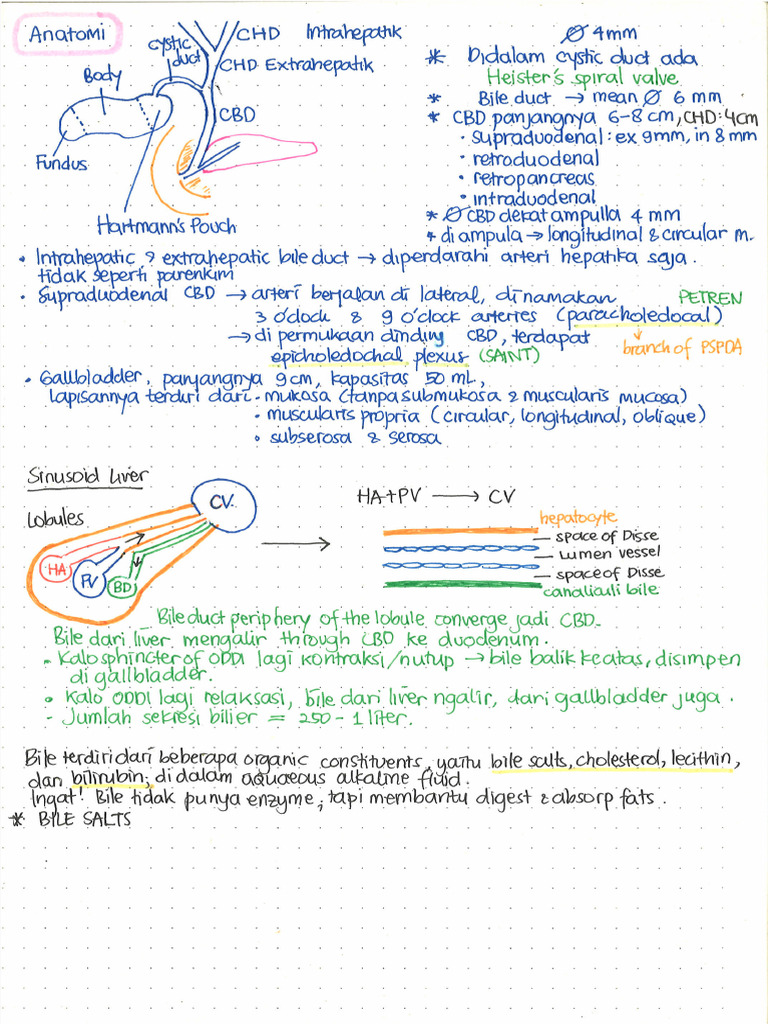 Anatomi
CHD Intrahepatik
cystic duct
CHD Extrahepatik
Body
CBD
Fundus
Hartmann's Pouch
Ø 4mm
* Didalam cystic duct ada
Heister's spiral valve.
* Bile duct → mean Ø 6 mm
* CBD panjangnya 6-8 cm, CHD: 4cm
• supraduodenal: ex 9mm, in 8 mm
• retroduodenal
• retropancreas
• intraduodenal
* Ø CBD dekat ampulla 4 mm
* di ampula → longitudinal & circular m.
• Intrahepatic & extrahepatic bile duct → diperdarahi arteri hepatika saja.
tidak seperti parenkim
• Supraduodenal CBD → arteri berjalan di lateral, dinamakan PETREN
3 o'clock & 9 o'clock arteries (paracholedocal)
→ di permukaan dinding CBD, terdapat
epicholedochal plexus (SAINT)
branch of PSPDA
• Gallbladder, panjangnya 9cm, kapasitas 50 mL,
lapisannya terdiri dari: • mukosa (tanpa submukosa & muscularis mucosa)
• muscularis propria (circular, longitudinal, oblique)
• subserosa & serosa
Sinusoid Liver
Lobules
CV.
HA
PV
BD
HA+PV → CV
hepatocyte
space of Disse
Lumen vessel
space of Disse
canaliauli bile
Bile duct periphery of the lobule converge jadi CBD.
Bile dari liver mengalir through CBD ke duodenum.
• Kalo sphincter of ODDI lagi kontraksi/nutup → bile balik keatas, disimpen
di gallbladder.
• Kalo ODDI lagi relaksasi, bile dari liver ngalir, dari gallbladder juga.
- Jumlah sekresi bilier = 250 - 1 liter.
Bile terdiri dari beberapa organic constituents, yaitu bile salts, cholesterol, lecithin,
dan bilirubin; di dalam aquaeous alkaline fluid.
Ingat! Bile tidak punya enzyme, tapi membantu digest & absorp fats.
* BILE SALTS